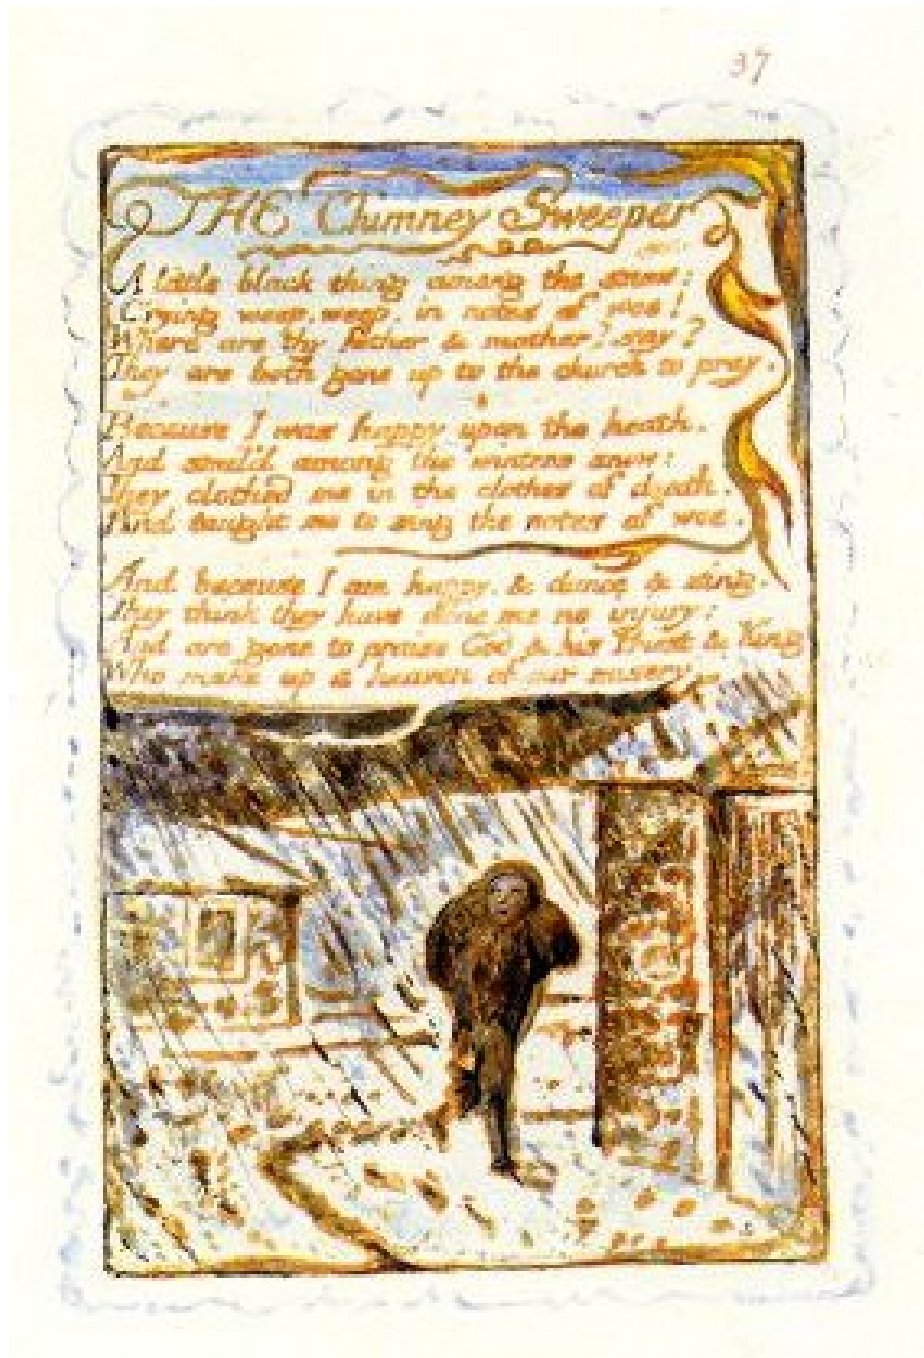 37
THE Chimney Sweeper
A little black thing among the snow:
Crying weep, weep, in notes of woe!
Where are thy father & mother? say?
They are both gone up to the church to pray.
Because I was happy upon the heath.
And smil'd among the winters snow:
They clothed me in the clothes of death.
And taught me to sing the notes of woe.
And because I am happy. & dance & sing.
They think they have done me no injury:
And are gone to praise God & his Priest & King
Who make up a heaven of our misery.